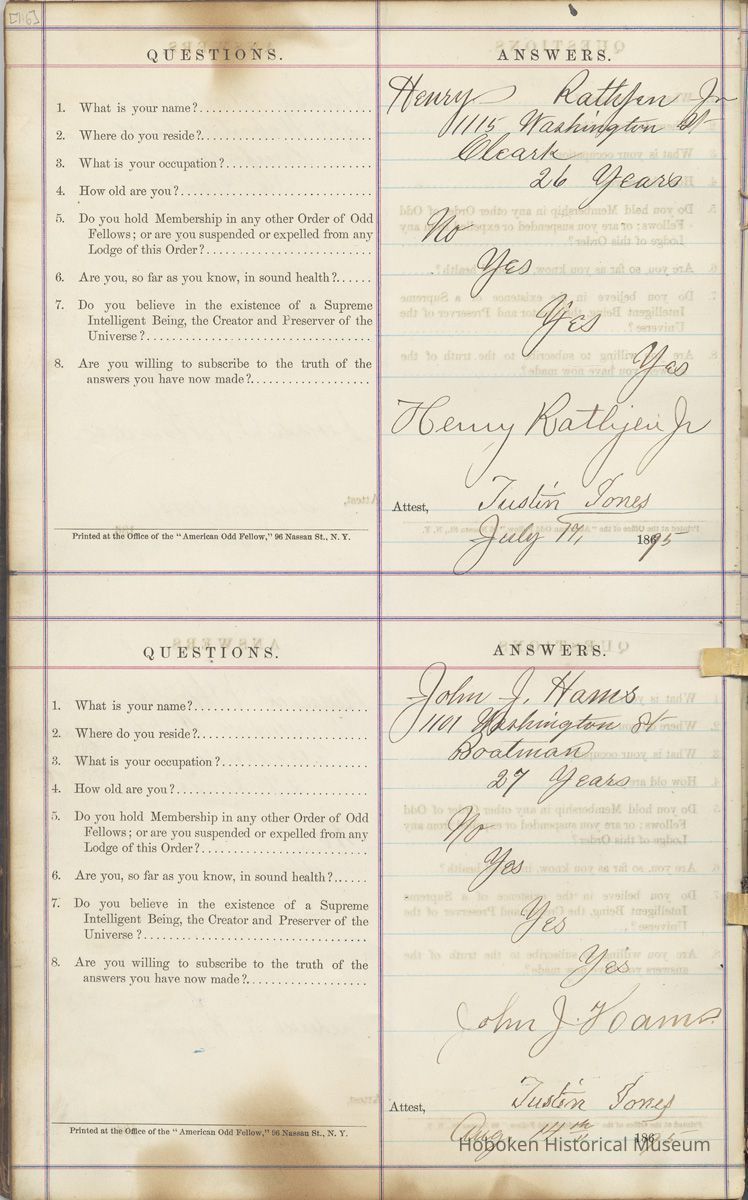 [116]
QUESTIONS. ANSWERS.
1. What is your name? Henry Rathjen Jr
2. Where do you reside? 1115 Washington St
3. What is your occupation? Cleark
4. How old are you? 26 Years
5. Do you hold Membership in any other Order of Odd
Fellows; or are you suspended or expelled from any
Lodge of this Order? No
6. Are you, so far as you know, in sound health? Yes
7. Do you believe in the existence of a Supreme
Intelligent Being, the Creator and Preserver of the
Universe? Yes
8. Are you willing to subscribe to the truth of the
answers you have now made? Yes
Henry Rathjen Jr
Attest, Justin Jones
Printed at the Office of the "American Odd Fellow," 96 Nassau St., N. Y.
July 186 95
QUESTIONS. ANSWERS.
1. What is your name? John J. Hams
2. Where do you reside? 1101 Washington St
3. What is your occupation? Boatman
4. How old are you? 27 Years
5. Do you hold Membership in any other Order of Odd
Fellows; or are you suspended or expelled from any
Lodge of this Order? No
6. Are you, so far as you know, in sound health? Yes
7. Do you believe in the existence of a Supreme
Intelligent Being, the Creator and Preserver of the
Universe? Yes
8. Are you willing to subscribe to the truth of the
answers you have now made? Yes
John J. Hams
Attest, Justin Jones
Printed at the Office of the "American Odd Fellow," 96 Nassau St., N. Y.
Aug. 14th 186 95
Hoboken Historical Museum